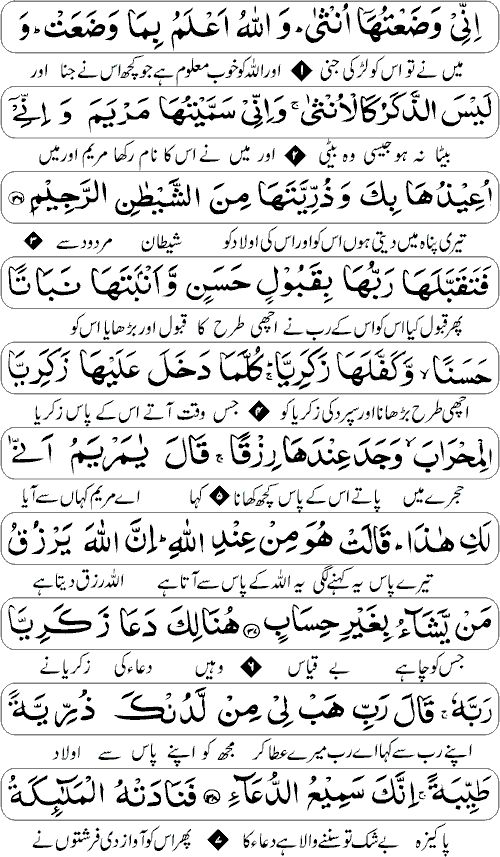 اِنِّیْ وَضَعْتُهَاۤ اُنْثٰىؕ وَ اللّٰهُ اَعْلَمُ بِمَا وَضَعَتْؕ وَ
میں نے تو اس کو لڑکی جنی ۱ اور اللہ کو خوب معلوم ہے جو کچھ اس نے جنا اور
لَیْسَ الذَّكَرُ كَالْاُنْثٰىۚ وَ اِنِّیْ سَمَّیْتُهَا مَرْیَمَ وَ اِنِّیْۤ
بیٹا نہ ہو جیسی وہ بیٹی ۲ اور میں نے اس کا نام رکھا مریم اور میں
اُعِیْذُهَا بِكَ وَ ذُرِّیَّتَهَا مِنَ الشَّیْطٰنِ الرَّجِیْمِ ۳۶
تیری پناہ میں دیتی ہوں اس کو اور اس کی اولاد کو شیطان مردود سے ۳
فَتَقَبَّلَهَا رَبُّهَا بِقَبُوْلٍ حَسَنٍ وَّ اَنْۢبَتَهَا نَبَاتًا
پھر قبول کیا اس کو اس کے رب نے اچھی طرح کا قبول اور بڑھایا اس کو
حَسَنًاۙ وَّ كَفَّلَهَا زَكَرِیَّاؕ كُلَّمَا دَخَلَ عَلَیْهَا زَكَرِیَّا
اچھی طرح بڑھانا اور سپرد کی زکریا کو ۴ جس وقت آتے اس کے پاس زکریا
الْمِحْرَابَۙ وَجَدَ عِنْدَهَا رِزْقًاۚ قَالَ یٰمَرْیَمُ اَنّٰى
حجرے میں پاتے اس کے پاس کچھ کھانا ۵ کہا اے مریم کہاں سے آیا
لَكِ هٰذَاؕ قَالَتْ هُوَ مِنْ عِنْدِ اللّٰهِؕ اِنَّ اللّٰهَ یَرْزُقُ
تیرے پاس یہ کہنے لگی یہ اللہ کے پاس سے آتا ہے اللہ رزق دیتا ہے
مَنْ یَّشَآءُ بِغَیْرِ حِسَابٍ ۳۷ هُنَالِكَ دَعَا زَكَرِیَّا
جس کو چاہے بے قیاس ۶ وہیں دعاء کی زکریا نے
رَبَّهٗۚ قَالَ رَبِّ هَبْ لِیْ مِنْ لَّدُنْكَ ذُرِّیَّةً
اپنے رب سے کہا اے رب میرے عطا کر مجھ کو اپنے پاس سے اولاد
طَیِّبَةًۚ اِنَّكَ سَمِیْعُ الدُّعَآءِ ۳۸ فَنَادَتْهُ الْمَلٰٓىِٕكَةُ
پاکیزہ بے شک تو سننے والا ہے دعا کا ۷ پھر اس کو آواز دی فرشتوں نے